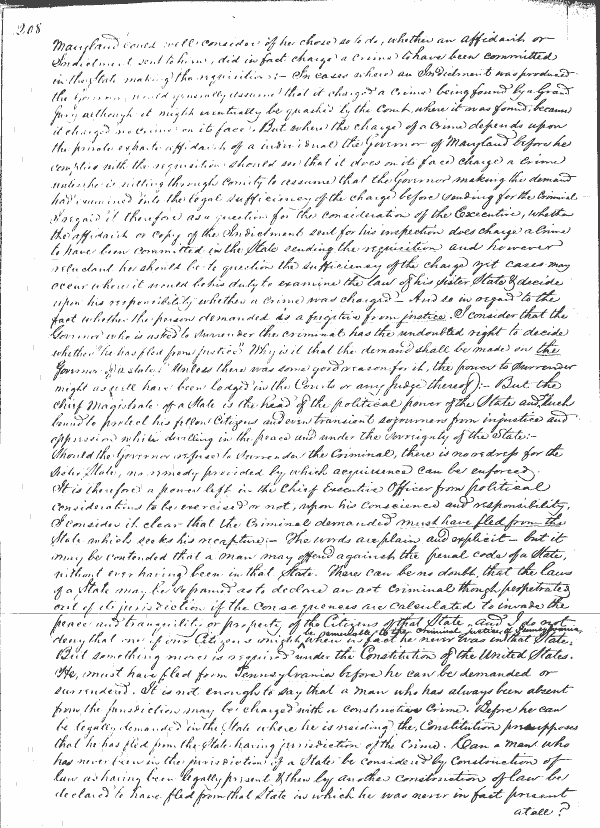 208
Maryland could well consider if he chose so to do, whether an affidavit or
Indictment sent to him, did in fact charge a Crime to have been committed
in the State making the requisition:- In cases where an Indictment was produced
the Governor would generally assume that it charged a Crime being found by a Grand
Jury although it might eventually be quashed by the Court, where it was found, because
it charged no Crime on its face. But where the charge of a Crime depends upon
the private exparte affidavit of a individual the Governor of Maryland before he
complies with the requisition should see that it does on its face charge a Crime
unless he is willing through Comity to assume that the Governor making the demand
had examined into the legal sufficiency of the charge before sending for the Criminal-
I regard it therefore as a question for the consideration of the Executive, whether
the affidavit or Copy of the Indictment sent for his inspection does charge a Crime
to have been committed in the State sending the requisition and however
reluctant he should be to question the sufficiency of the charge yet cases may
occur where it would be his duty to examine the law of his sister State & decide
upon his responsibility whether a Crime was charged - And so in regard to the
fact whether the person demanded is a fugitive from justice. I consider that the
Governor who is asked to surrender the criminal has the undoubted right to decide
whether "he has fled from justice". Why is it that the demand shall be made on the
Governor of a State? Unless there was some good reason for it, the power to surrender
might as well have been lodged in the Courts or any Judge thereof:- But the
Chief Magistrate of a State is the head of the political power of the State and such
bound to protect his fellow Citizens and even transient sojourners from injustice and
oppression while dwelling in the peace and under the Sovreignty of the State:-
Should the Governor refuse to Surrender the Criminal, there is no redress for the
Sister State, no remedy provided by which acquiescence can be enforced.
It is therefore a power left in the Chief Executive Officer from political
considerations to be exercised or not, upon his Conscience and responsibility.
I consider it clear that the Criminal demanded must have fled from the
State which seeks his recapture:- The words are plain and explicit - but it
may be contended that a man may offend against the penal code of a State,
without ever having been in that State. There can be no doubt that the laws
of a State may be so framed as to declare an act Criminal though perpetrated
out of its jurisdiction if the Consequences are calculated to invade the
peace and tranquility or property of the Citizens of that State, and I do not
deny that one of our Citizens might be amenable to the criminal justice of Pennsylvania, when in fact he never was in that State.
But something more is required under the Constitution of the United States.
He, must have fled from Pennsylvania before he can be demanded or
surrendered. It is not enough to say that a man who has always been absent
from the jurisdiction may be charged with a constructive Crime. Before he can
be legally demanded in the State where he is residing the Constitution presupposes
that he has fled from the State having jurisdiction of the Crime. Can a man who
has never been in the jurisdiction of a State be considered by Construction of
law as having been legally present & then by another construction of law be
declared to have fled from that State in which he was never in fact present
at all?